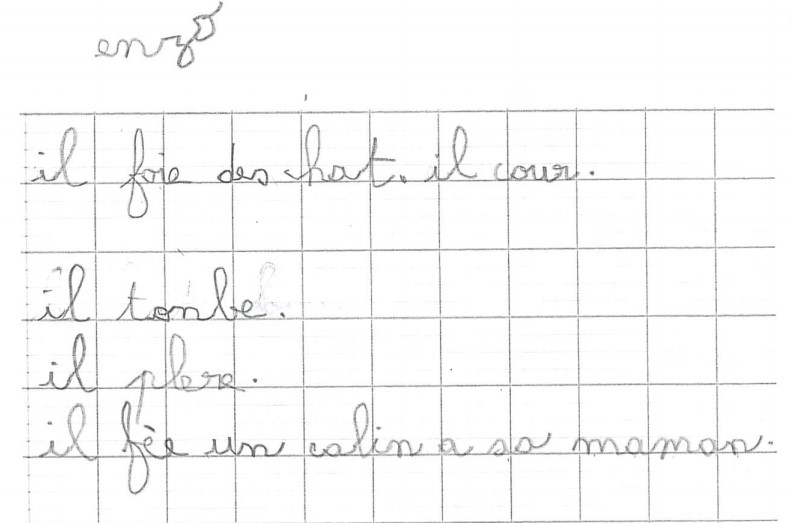 enzo
il foie des chat. il cour.
il tonbe.
il plere.
il fèe un calin a sa maman.